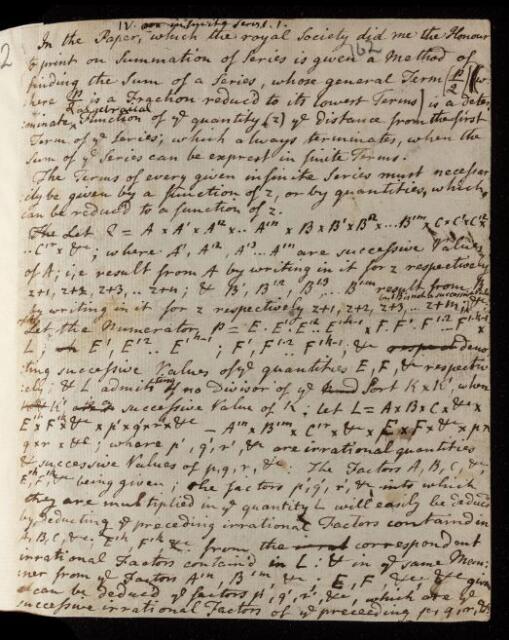 IV. on infinite Series. 1.
2
162
In the Paper, which the royal Society did me the Honour
to print on Summation of Series is given a Method of
finding the Sum of a Series, whose general Term (P/Q) (w
here P/Q is a Fraction reducd to its lowest Terms) is a deter
minate algebraical Function of ye quantity (z) ye distance from the first
Term of ye Series; which always terminates, when the
Sum of ye Series can be exprest in finite Terms.
The Terms of every given infinite Series must necessar
ily be given by a function of z, or by quantities, which
can be reduced to a function of z.
Let Q = A x A' x A'2 x .. A'm x B x B' x B'2 x ... B'm x C x C' x C'2 x
.. C'r x &c; where A', A'2, A'3 ... A'm are successive Values
of A; i,e result from A by writing in it for z respectively
z+1, z+2, z+3, .. z+n; & B', B'2, B'3 ... B'm result from B
by writing in it for z respectively z+1, z+2, z+3, ..
Let the Numerator P = E . E' . E'2 .. E'h-1 x F . F' . F'2 .. F'k-1 x
L; E', E'2 .. E'h-1; F', F'2 .. F'k-1, &c deno
ting successive Values of ye quantities E, F, &c respectiv
ely; & L admits of no Divisor of ye Sort K x K', when
K' successive Value of K; let L = A x B x C x &c x
E'h x F'k x &c x p' x q' x r' x &c - A'm x B'm x C'r x &c x E x F x &c x p x
q x r x &c; where p', q', r', &c are irrational quantities
& successive Values of p, q, r, &c. The Factors A, B, C, &c,
E'h, F'k &c being given; the factors p', q', r', &c into which
they are multiplied in ye quantity L will easily be deducd
by deducting ye preceding irrational Factors containd in
A, B, C, &c, E'h, F'k &c from the correspondent
irrational Factors containd in L: & in ye same Man:
ner from ye Factors A'm, B'm, &c; E, F, &c &c given
can be deducd ye factors p', q', r', &c, which are ye
successive irrational Factors of ye preceding p, q, r, &c